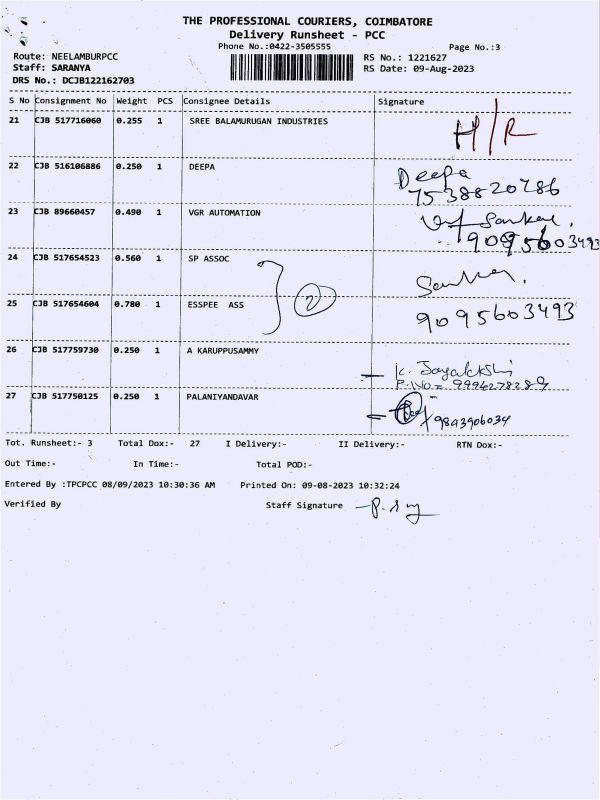 THE PROFESSIONAL COURIERS, COIMBATORE
Delivery Runsheet - PCC
Phone No.:0422-3505555 Page No.:3
Route: NEELAMBURPCC RS No.: 1221627
Staff: SARANYA RS Date: 09-Aug-2023
DRS No.: DCJB122162703
S No Consignment No Weight PCS Consignee Details Signature
21 CJB 517716060 0.255 1 SREE BALAMURUGAN INDUSTRIES H/R
22 CJB 516106886 0.250 1 DEEPA Deepa
7538820786
23 CJB 89660457 0.490 1 VGR AUTOMATION Sankar.
9095603493
24 CJB 517654523 0.560 1 SP ASSOC Sankar.
2
25 CJB 517654604 0.780 1 ESSPEE ASS 9095603493
26 CJB 517759730 0.250 1 A KARUPPUSAMMY K. Jayalakshi
P.No=
27 CJB 517750125 0.250 1 PALANIYANDAVAR 9843906034
Tot. Runsheet:- 3 Total Dox:- 27 I Delivery:- II Delivery:- RTN Dox:-
Out Time:- In Time:- Total POD:-
Entered By :TPCPCC 08/09/2023 10:30:36 AM Printed On: 09-08-2023 10:32:24
Verified By Staff Signature